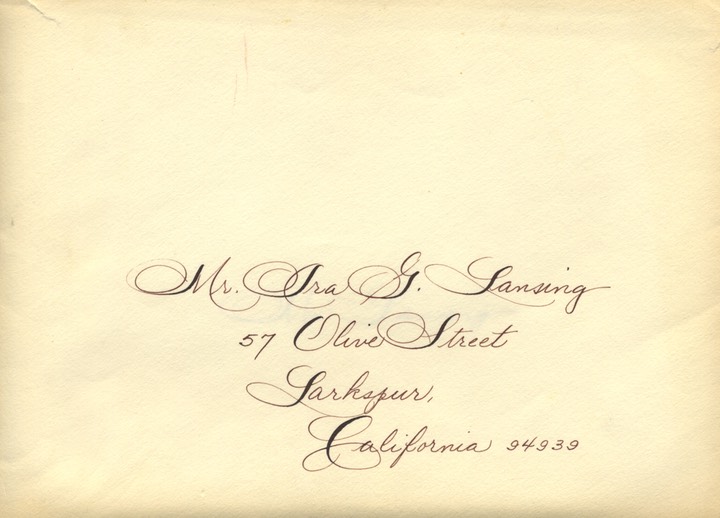 Mr. Ira G. Lansing
57 Olive Street
Larkspur,
California 94939